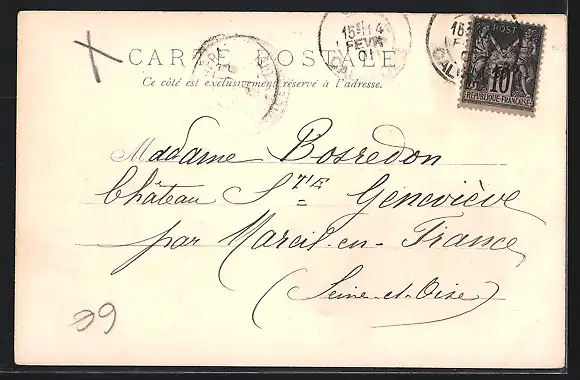 CARTE POSTALE
Ce côté est exclusivement réservé à l'adresse.
15 14
FEVR
01
15
POST
10
RÉPUBLIQUE FRANÇAISE
Madame Bosredon
Château STE Geneviève
par Mareil-en-France
(Seine-et-Oise)
09